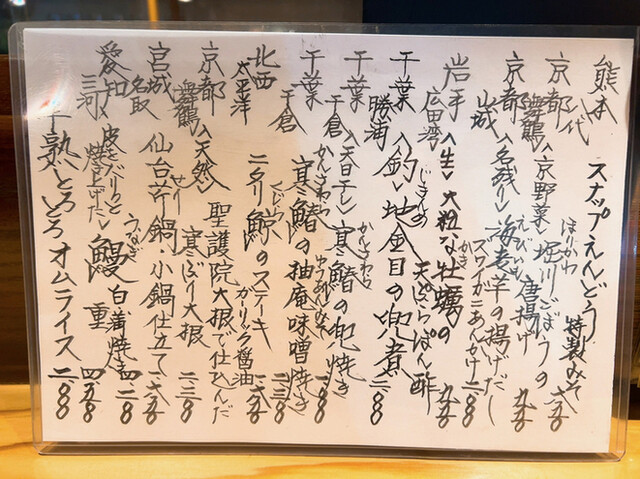 熊本 八代 スナップえんどう 特製みそ 六五〇
京都 舞鶴 〈京野菜〉 堀川ごぼうの唐揚げ 九五〇
ほりかわ
京都 山城 〈名残り〉 海老芋の揚げだし ズワイガニあんかけ 二.八〇
えびいも
岩手 広田湾 〈生〉 大粒な牡蠣の天ぷら ぽん酢 九五〇
かき
千葉 勝浦 〈釣〉 地金目の兜煮 二.八〇
じきんめ
千葉 千倉 〈天日干し〉 寒鰆の兜焼き
かんさわら
千葉 千倉 寒鰆の柚庵味噌焼き 一.八〇
かんさわら ゆうあんみそ
北西太平洋 ニタリ鯨のステーキ ガーリック醤油 一.三八〇
くじら
京都 舞鶴 〈天然〉 寒ぶり大根 聖護院大根で仕込んだ 一.三八〇
宮城 名取 仙台芹鍋・小鍋仕立て 一.六五〇
せり
愛知 三河 皮をパリッと焼上げた 鰻 白蒲焼 四.二八〇
うなぎ
重 四.五八〇
半熟とろとろオムライス 一.二八〇